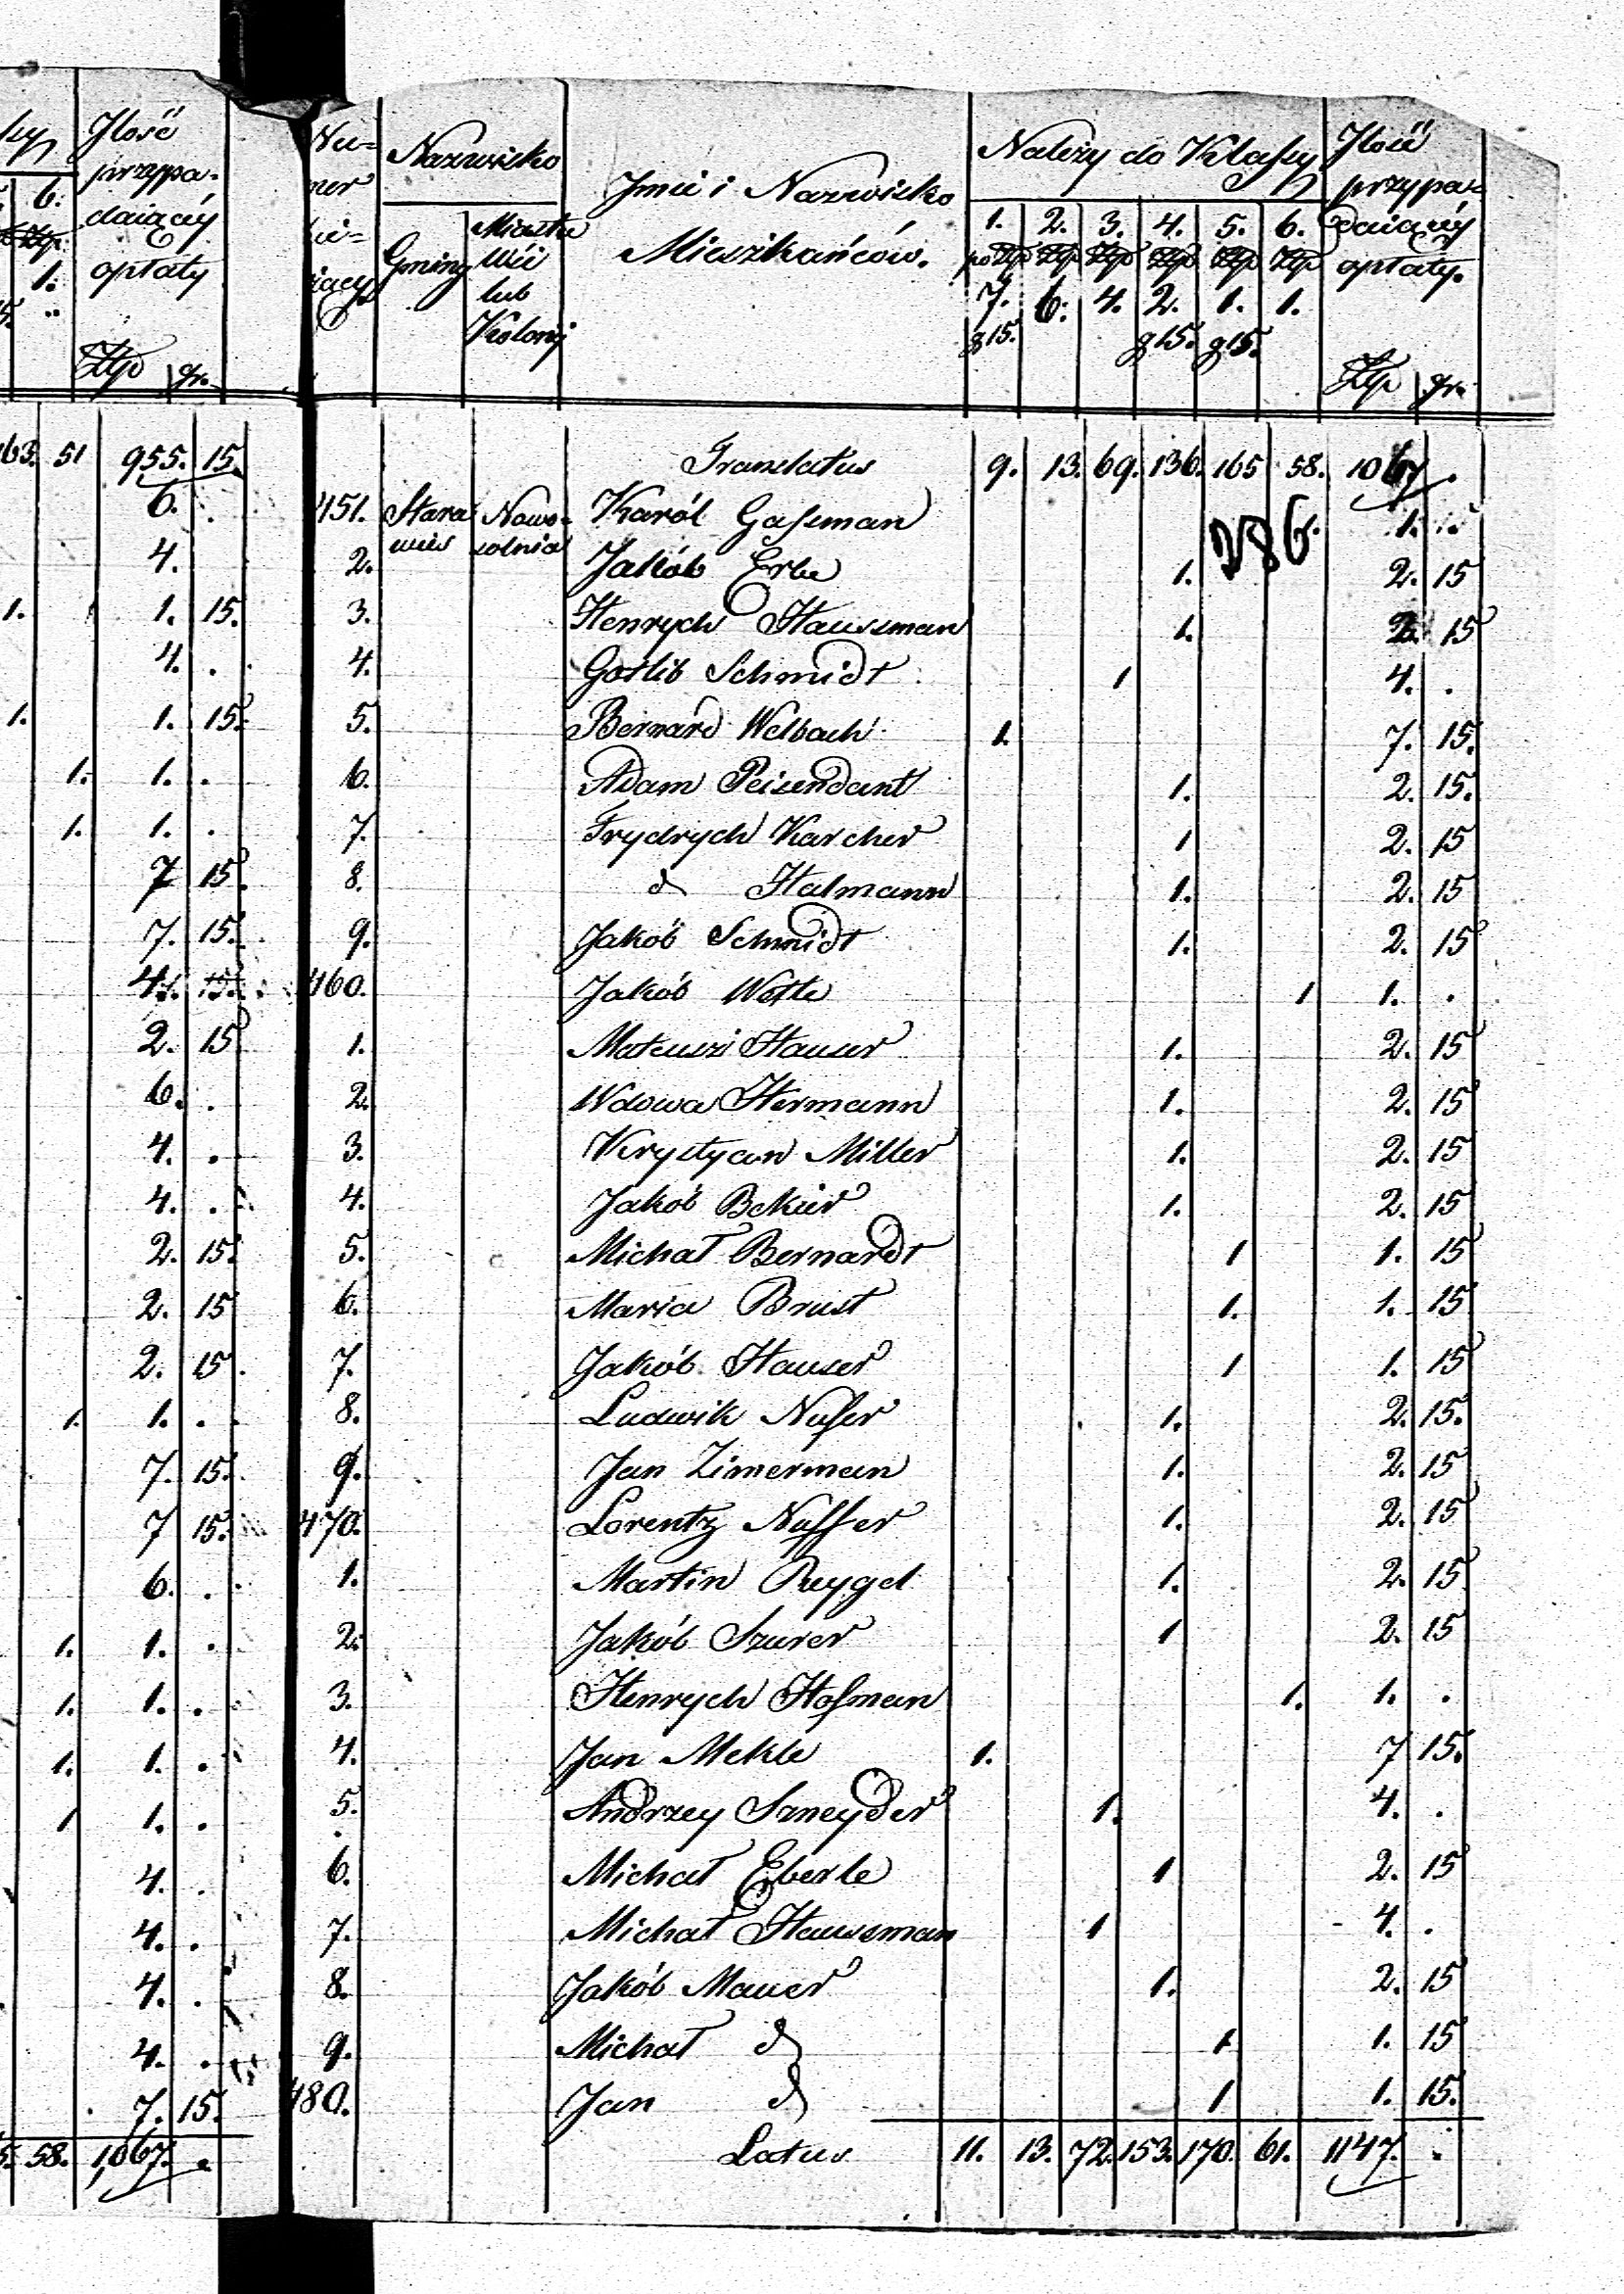 ky Jlość
przypa-
daiącéy
6. opłaty
Złp
1.
Złp gr.
163. 51 955. 15.
6. .
4.
1. 1. 15.
4. .
1. 1. 15.
1. 1. .
1. 1. .
7 15.
7. 15.
4. 15.
2. 15
6. .
4. .
4. .
2. 15.
2. 15
2. 15.
1. 1. .
7. 15.
7 15.
6. .
1. 1. .
1. 1. .
1. 1. .
1 1. .
4. .
4. .
4. .
4. .
7. 15.
5. 58. 1,067. .
Nu- Nazwisko Jmie i Nazwisko Należy do Klassy Jlość
mer Mieszkańców. przypa-
Gminy Miasta daiącéy
Wśi opłaty.
lub
Kolonij
1. 2. 3. 4. 5. 6.
po Złp Złp Złp Złp Złp Złp
7. 6. 4. 2. 1. 1.
g 15. g 15. g 15. Złp gr.
Translatus 9. 13. 69. 136. 165 58. 1067 .
451. Stara wieś Nowo- solnia Karól Gassman 1. .
286.
2. Jakób Erbe 1. 2. 15
3. Henrych Haussman 1. 2. 15
4. Gotlib Schmidt 1 4. .
5. Bernard Welbach 1. 7. 15.
6. Adam Peisendant 1. 2. 15.
7. Frydrych Karcher 1 2. 15
8. d Halmann 1. 2. 15
9. Jakób Schmidt 1. 2. 15
460. Jakób Weste 1 1. .
1. Mateusz Hauser 1. 2. 15
2. Wdowa Hermann 1. 2. 15
3. Krystyan Miller 1. 2. 15
4. Jakób Bekier 1. 2. 15
5. Michał Bernardt 1 1. 15
6. Maria Brust 1. 1. 15
7. Jakób Hauser 1 1. 15
8. Ludwik Nusser 1. 2. 15.
9. Jan Zimerman 1. 2. 15
470. Lorentz Nuffer 1. 2. 15
1. Martin Reygel 1. 2. 15
2. Jakób Szurer 1 2. 15
3. Henrych Hofman 1. 1. .
4. Jan Mekle 1. 7 15.
5. Andrzey Szneyder 1. 4. .
6. Michał Eberle 1 2. 15
7. Michał Haussman 1 4. .
8. Jakób Mauer 1. 2. 15
9. Michał d 1 1. 15
480. Jan d 1 1. 15.
Latus 11. 13. 72. 153. 170. 61. 1147. .